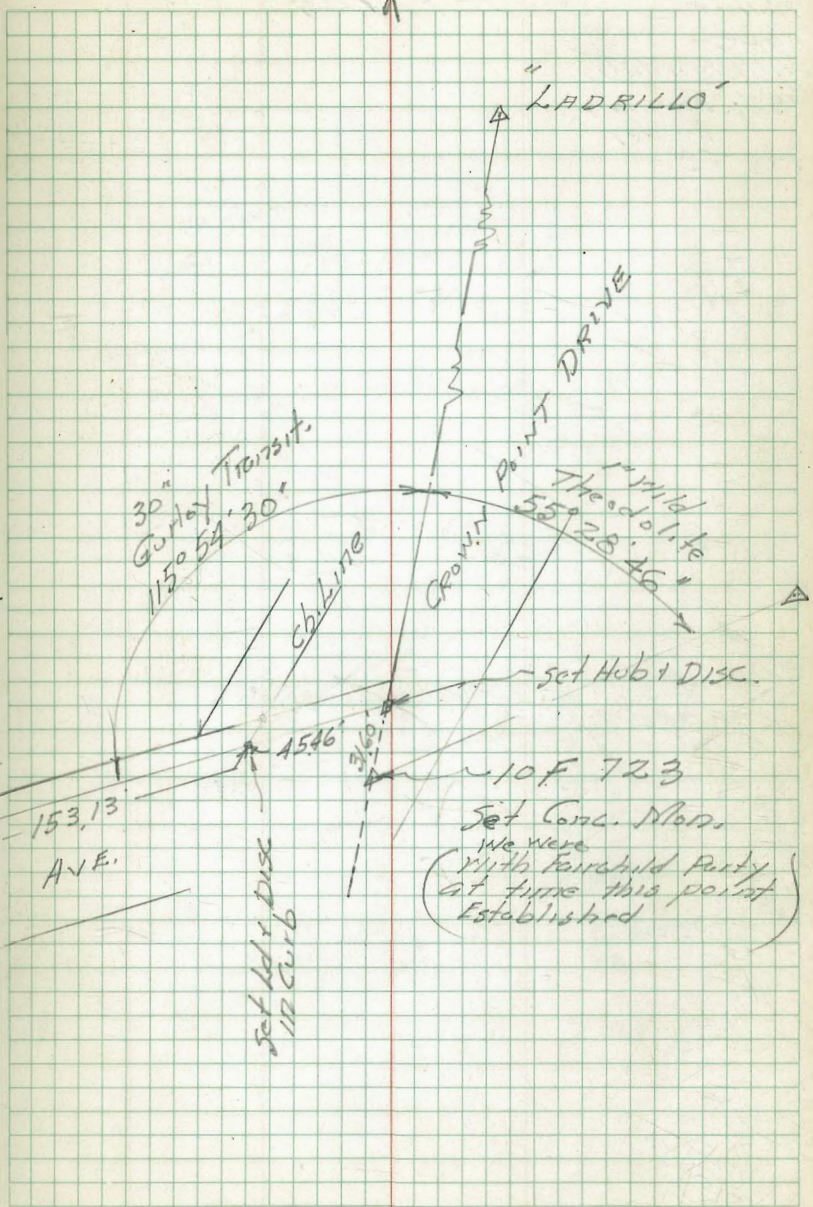 "LADRILLO"
CROWN POINT DRIVE
30"
Gurley Transit.
115° 54' 30"
1" Wild
Theodolite
55° 28' 46"
Cb. Line
Set Hub & Disc.
45.46'
31.60'
10F 723
153.13'
AVE.
Set Conc. Mon.
We were
With Fairchild Party
at time this point
Established
Set Ld & Disc
in Curb